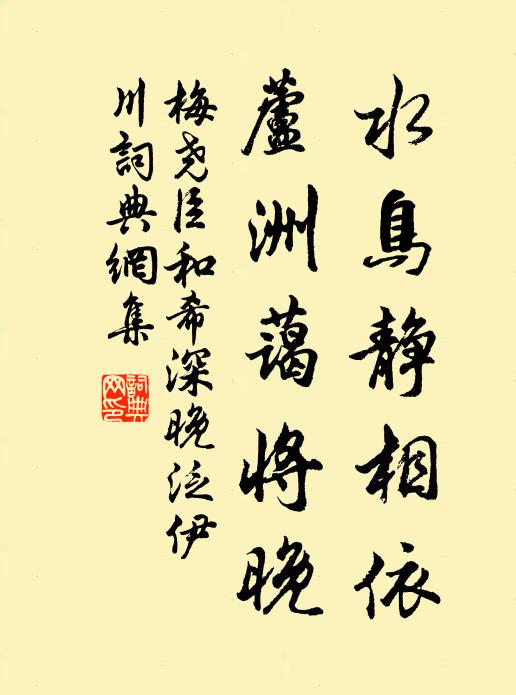 水鳥靜相依
蘆洲藹將晚
梅尭臣和希深晚泛伊
川詞典網集
詞典
网印